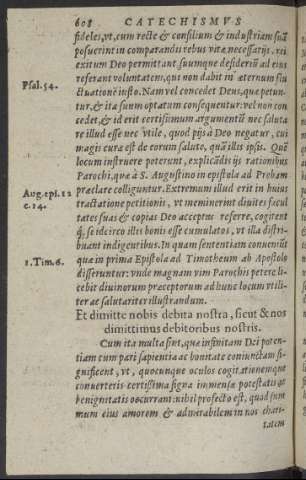 608 CATECHISMVS
fideles, vt, cum recte & consilium & industriam suã
posuerint in comparandis rebus vitæ necessarijs, rei
exitum Deo permittant, suumque desideriũ ad eius
referant voluntatem, qui non dabit in æternum flu
Psal. 54. ctuationẽ iusto. Nam vel concedet Deus, quæ petun-
tur, & ita suum optatum consequentur: vel non con
cedet, & id erit certissimum argumentũ nec saluta
re illud esse nec vtile, quod pijs à Deo negatur, cui
magis cura est de eorum salute, quã illis ipsis. Quẽ
locum instruere poterunt, explicãdis ijs rationibus
Parochi, quæ à S. Augustino in epistola ad Probam
Aug. epi. 12 præclare colliguntur. Extremum illud erit in huius
c. 14. tractatione petitionis, vt meminerint diuites facul
tates suas & copias Deo acceptas referre, cogitent
q́;, se idcirco illis bonis esse cumulatos, vt illa distri-
buant indigentibus. In quam sententiam conueniũt
1. Tim. 6. quæ in prima Epistola ad Timotheum ab Apostolo
disseruntur: vnde magnam vim Parochis petere li-
cebit diuinorum præceptorum ad hunc locum vtili-
ter ac salutariter illustrandum.
Et dimitte nobis debita nostra, sicut & nos
dimittimus debitoribus nostris.
Cum ita multa sint, quæ infinitam Dei poten-
tiam cum pari sapientia ac bonitate coniunctam si-
gnificent, vt, quocunque oculos cogitationemque
conuerteris certissima signa immensæ potestatis ac
benignitatis occurrant: nihil profecto est, quod sum
mum eius amorem & admirabilem in nos chari-
tatem